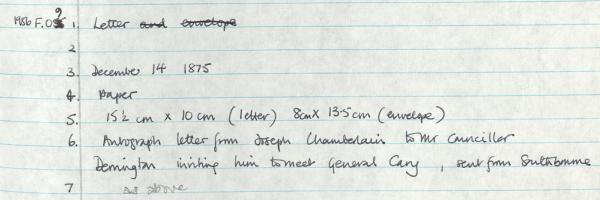 9
1986 F.O 1. Letter and envelope
2
3. December 14 1875
4. Paper
5. 15½ cm x 10 cm (letter) 8cm x 13.5 cm (envelope)
6. Autograph letter from Joseph Chamberlain to Mr Councillor
Demington inviting him to meet General Cary, sent from Southbourne
7 as above